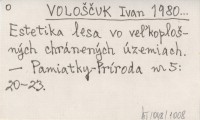 o
VOLOŠČUK Ivan 1980...
Estetika lesa vo veľkoploš-
ných chránených územiach.
— Pamiatky-Príroda nr 5:
20-23.